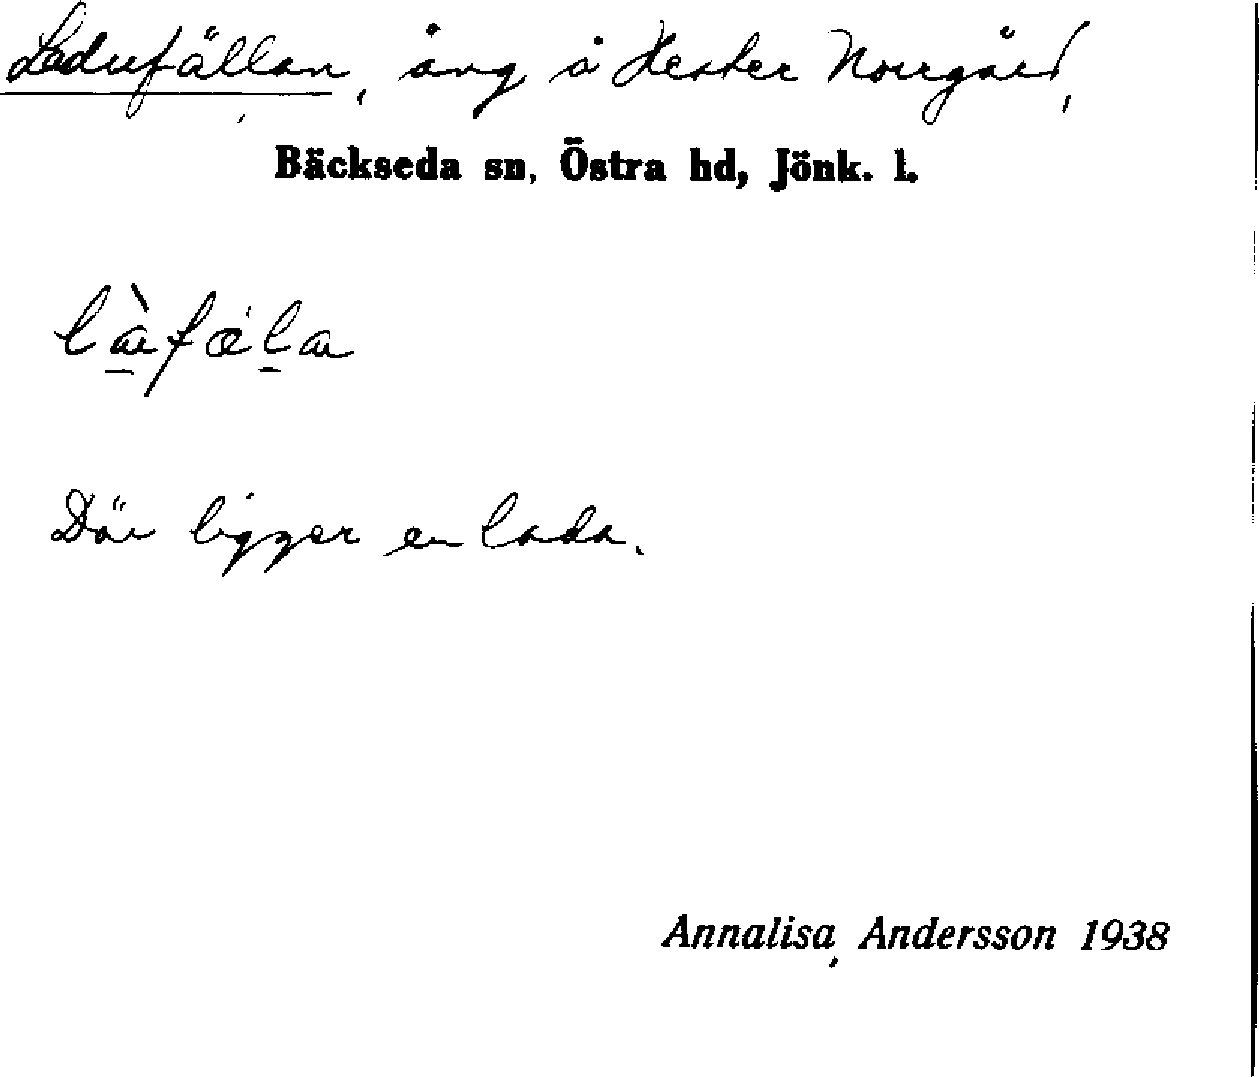 Ladufällan, äng å Hester Norrgård,
Bäckseda sn, Östra hd, Jönk. l.
làfæ̀la
Där ligger en lada.
Annalisa Andersson 1938